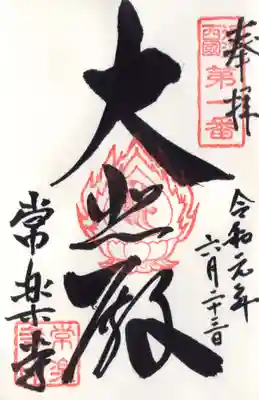 奉拝
西國
第一番
令和元年
六月二十三日
大悲殿
常楽寺
常楽